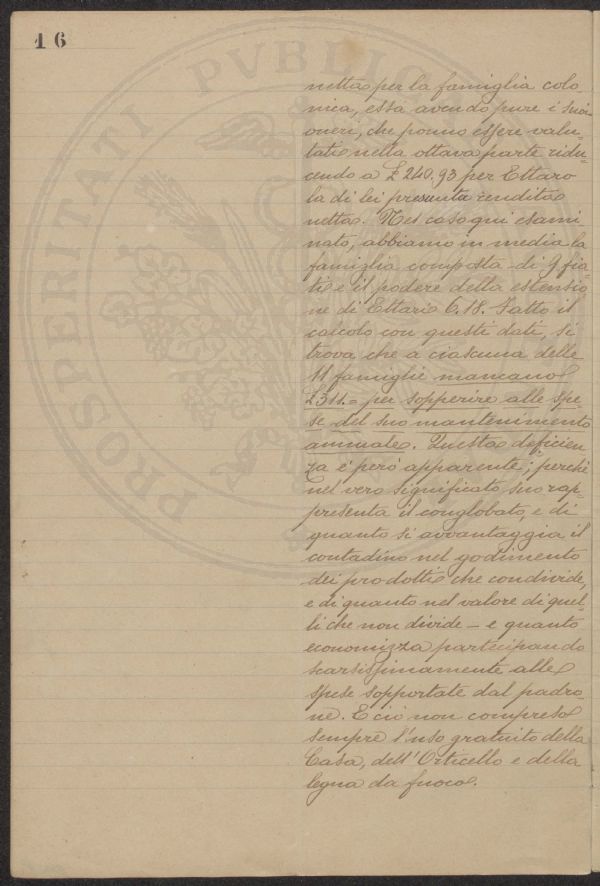 16
PROSPERITATI PVBLIC
netta per la famiglia colo-
nica, essa avendo pure i suoi
oneri, che ponno essere valu-
tati nella ottava parte ridu-
cendo a £ 240.93 per Ettaro
la di lei presunta rendita
netta. Nel caso qui esami
nato, abbiamo in media la
famiglia composta di 9 fia-
ti e il podere della estensio
ne di Ettari 6.18. Fatto il
calcolo con questi dati, si
trova che a ciascuna delle
11 famiglie mancano
£311.= per sopperire alle spe-
se del suo mantenimento
annuale. Questa deficien
za è però apparente; perchè
nel vero significato suo rap-
presenta il conglobato, e di
quanto si avvantaggia il
contadino nel godimento
dei prodotti che condivide,
e di quanto nel valore di quel-
li che non divide – e quanto
economizza partecipando
scarsissimamente alle
spese sopportate dal padro-
ne. E ciò non compreso
sempre l'uso gratuito della
Casa, dell'Orticello e della
legna da fuoco.